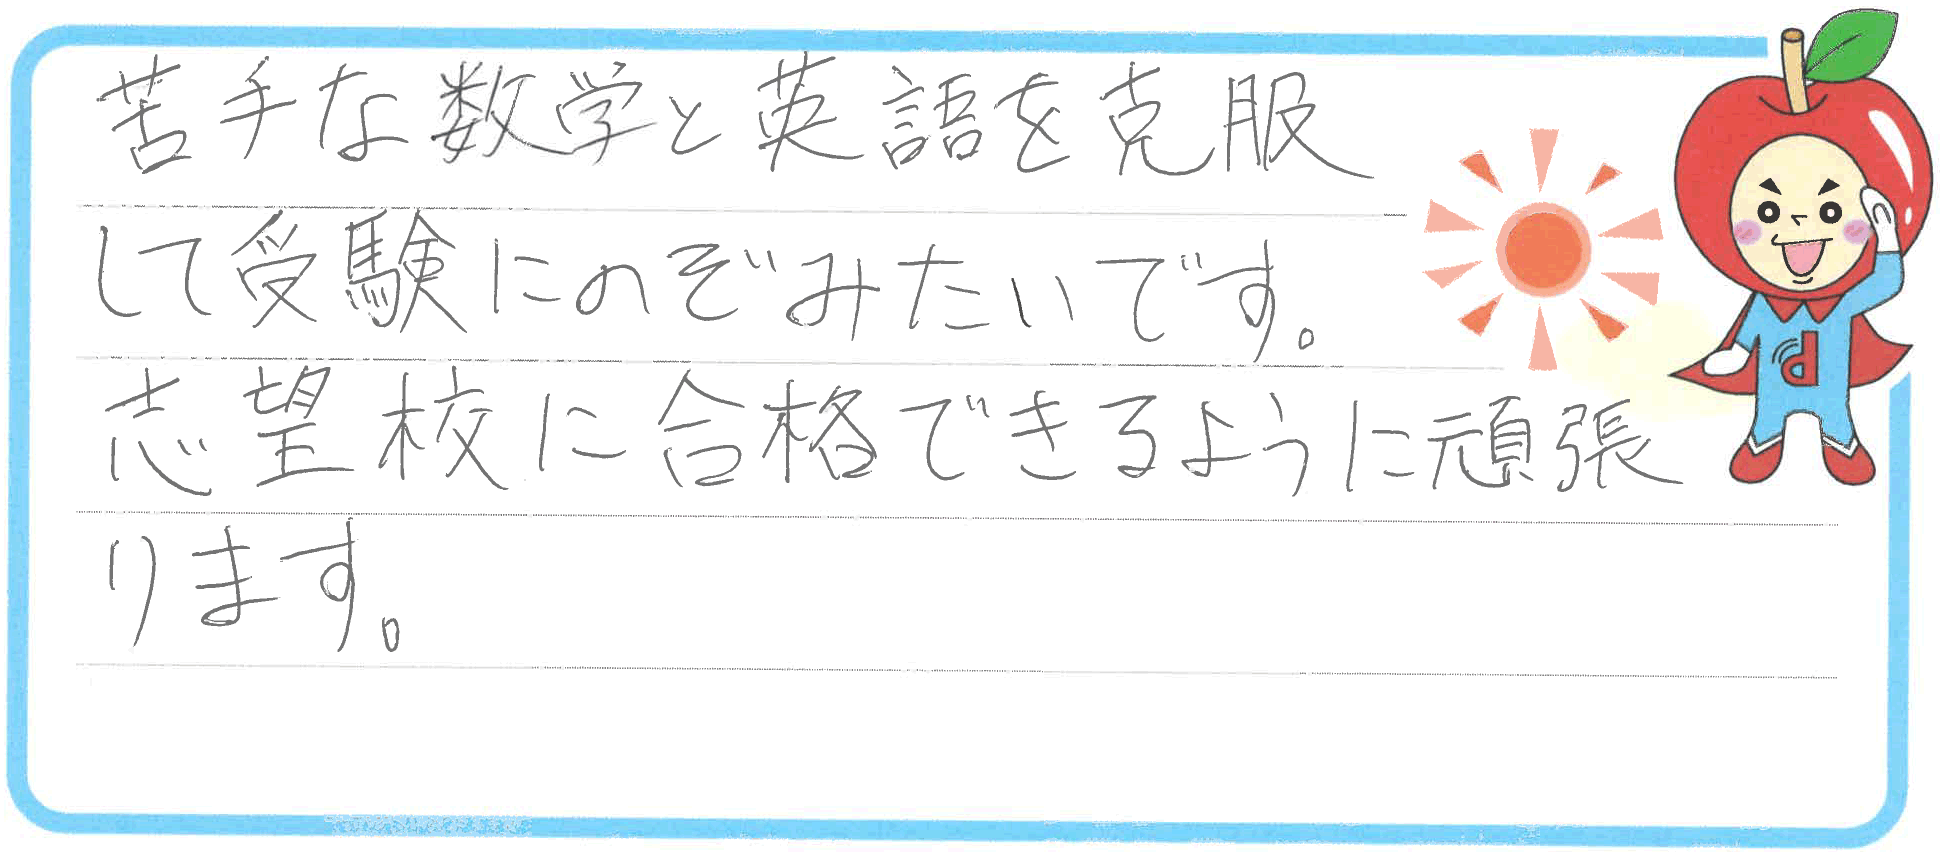 苦手な数学と英語を克服
して受験にのぞみたいです。
志望校に合格できるように頑張
ります。